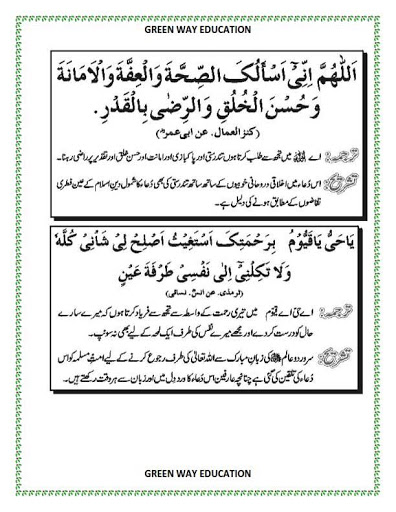 GREEN WAY EDUCATION
اَللّٰهُمَّ اِنِّیْٓ اَسْأَلُکَ الصِّحَّةَ وَالْعِفَّةَ وَالْاَمَانَةَ
وَحُسْنَ الْخُلُقِ وَالرِّضٰی بِالْقَدْرِ.
(کنز العمال، عن ابی عمر)
ترجمہ: اے اللہ میں تجھ سے طلب کرتا ہوں تندرستی اور پاکبازی اور امانت اور حسن خلق اور تقدیر پر راضی رہنا۔
تشریح: اس دُعاء میں اخلاقی و روحانی خوبیوں کے ساتھ ساتھ تندرستی کی بھی دُعاء کا شمول دین اسلام کے عین فطری
تقاضوں کے مطابق ہونے کی دلیل ہے۔
یَاحَیُّ یَاقَیُّوْمُ بِرَحْمَتِکَ اَسْتَغِیْثُ اَصْلِحْ لِیْ شَأْنِیْ کُلَّهٗ
وَلَا تَکِلْنِیْٓ اِلٰی نَفْسِیْ طَرْفَةَ عَیْنٍ
(ترمذی، عن انس، نسائی)
ترجمہ: اے حی اے قیوم میں تیری رحمت کے واسطہ سے تجھ سے فریاد کرتا ہوں کہ میرے سارے
حال کو درست کردے اور مجھے میرے نفس کی طرف ایک لمحہ کے لیے بھی نہ سونپ۔
تشریح: سرور دو عالم ﷺ کی زبانِ مبارک سے اللہ تعالیٰ کی طرف رجوع کرنے کے لیے امت مسلمہ کو اس
دُعاء کی تلقین کی گئی ہے چنانچہ عارفین اس دُعاء کا ورد دل میں اور زبان سے ہر وقت رکھتے ہیں۔
GREEN WAY EDUCATION